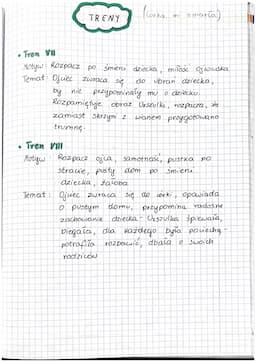 TRENY (córka mu zmarła)
• Tren VII
Motyw: Rozpacz po śmierci dziecka, miłość ojcowska
Temat: Ojciec zwraca się do ubrań dziecka,
by nie przypominały mu o dziecku.
Rozpamiętuje obraz Urszulki, rozpacza, że
zamiast skrzyni z wianem przygotowano
trumnę.
• Tren VIII
Motyw: Rozpacz ojca, samotność, pustka po
stracie, pusty dom po śmierci
dziecka, żałoba
Temat: Ojciec zwraca się do córki, opowiada
o pustym domu, przypomina radosne
zachowanie dziecka - Urszulka śpiewała,
biegała, dla każdego była pociechą -
potrafiła rozbawić, dbała o swoich
rodziców